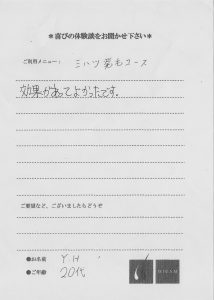 ＊喜びの体験談をお聞かせ下さい＊
ご利用メニュー： ミハツ発毛コース
効果があってよかったです。
ご要望など、ございましたらどうぞ
●お名前 Y.H
●ご年齢 20代